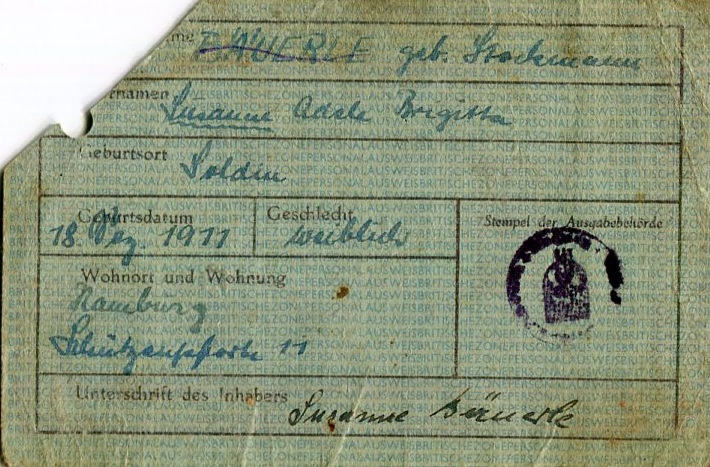 me BÄUERLE geb. Stockmann
rnamen Susanne Adele Brigitta
Geburtsort Soldin
Geburtsdatum
18. Dez. 1911
Geschlecht
weiblich
Stempel der Ausgabebehörde
Wohnort und Wohnung
Hamburg
Schützenpforte 11
Unterschrift des Inhabers Susanne Bäuerle